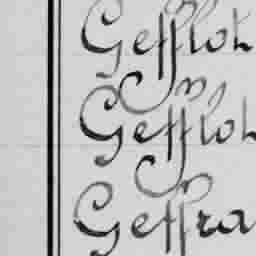 Gefflot
Gefflot
Geffra